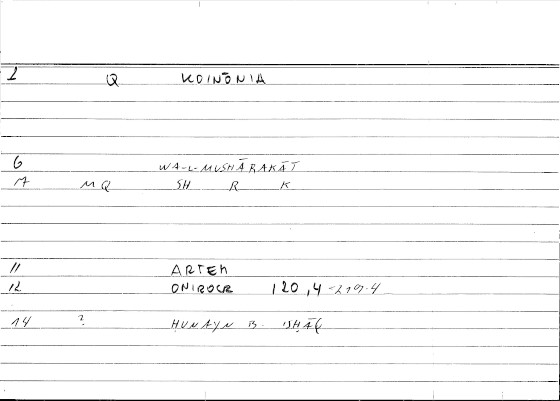 1 Q KOINŌNIA
6 WA-L-MUSHĀRAKĀT
17 MQ SH R K
11 ARTEM
12 ONIROCR 120,4-219.4
14 ? ḤUNAYN B. ISḤĀQ